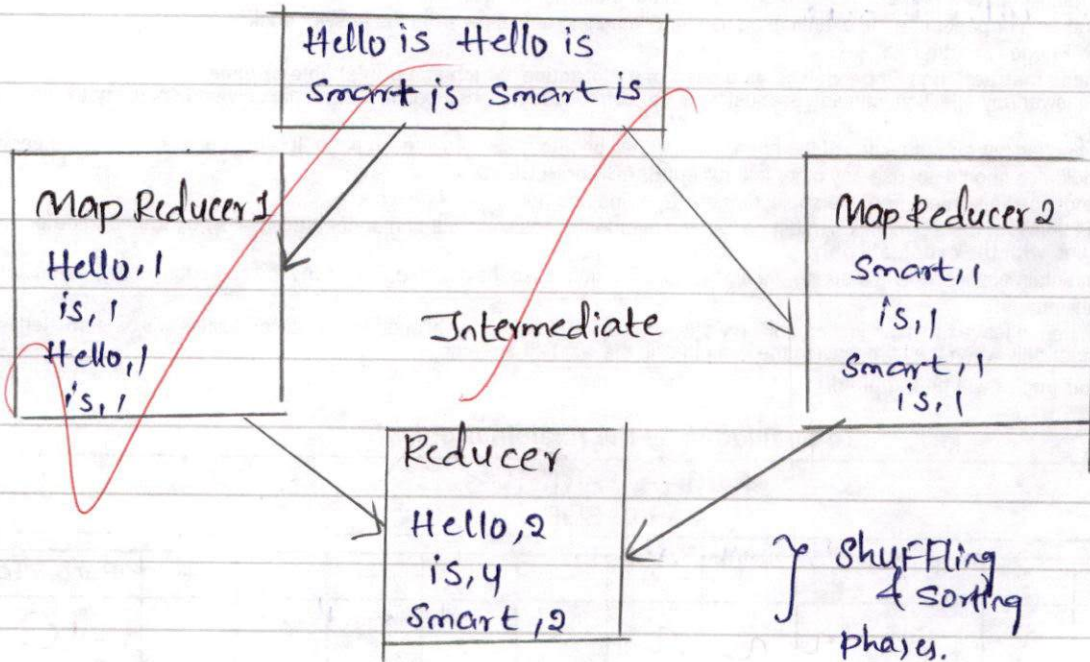 Hello is Hello is
Smart is Smart is
Map Reducer 1
Hello, 1
is, 1
Hello, 1
is, 1
Intermediate
Map Reducer 2
Smart, 1
is, 1
Smart, 1
is, 1
Reducer
Hello, 2
is, 4
Smart, 2
} Shuffling
& Sorting
phases.